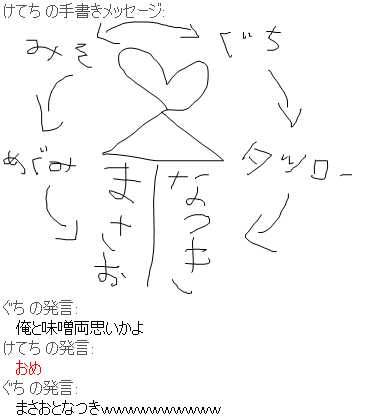 けてち の手書きメッセージ:
みそ
ぐち
めぐみ
タツロー
まさお
なつき
ぐち の発言:
俺と味噌両思いかよ
けてち の発言:
おめ
ぐち の発言:
まさおとなつきwwwwwwwwww